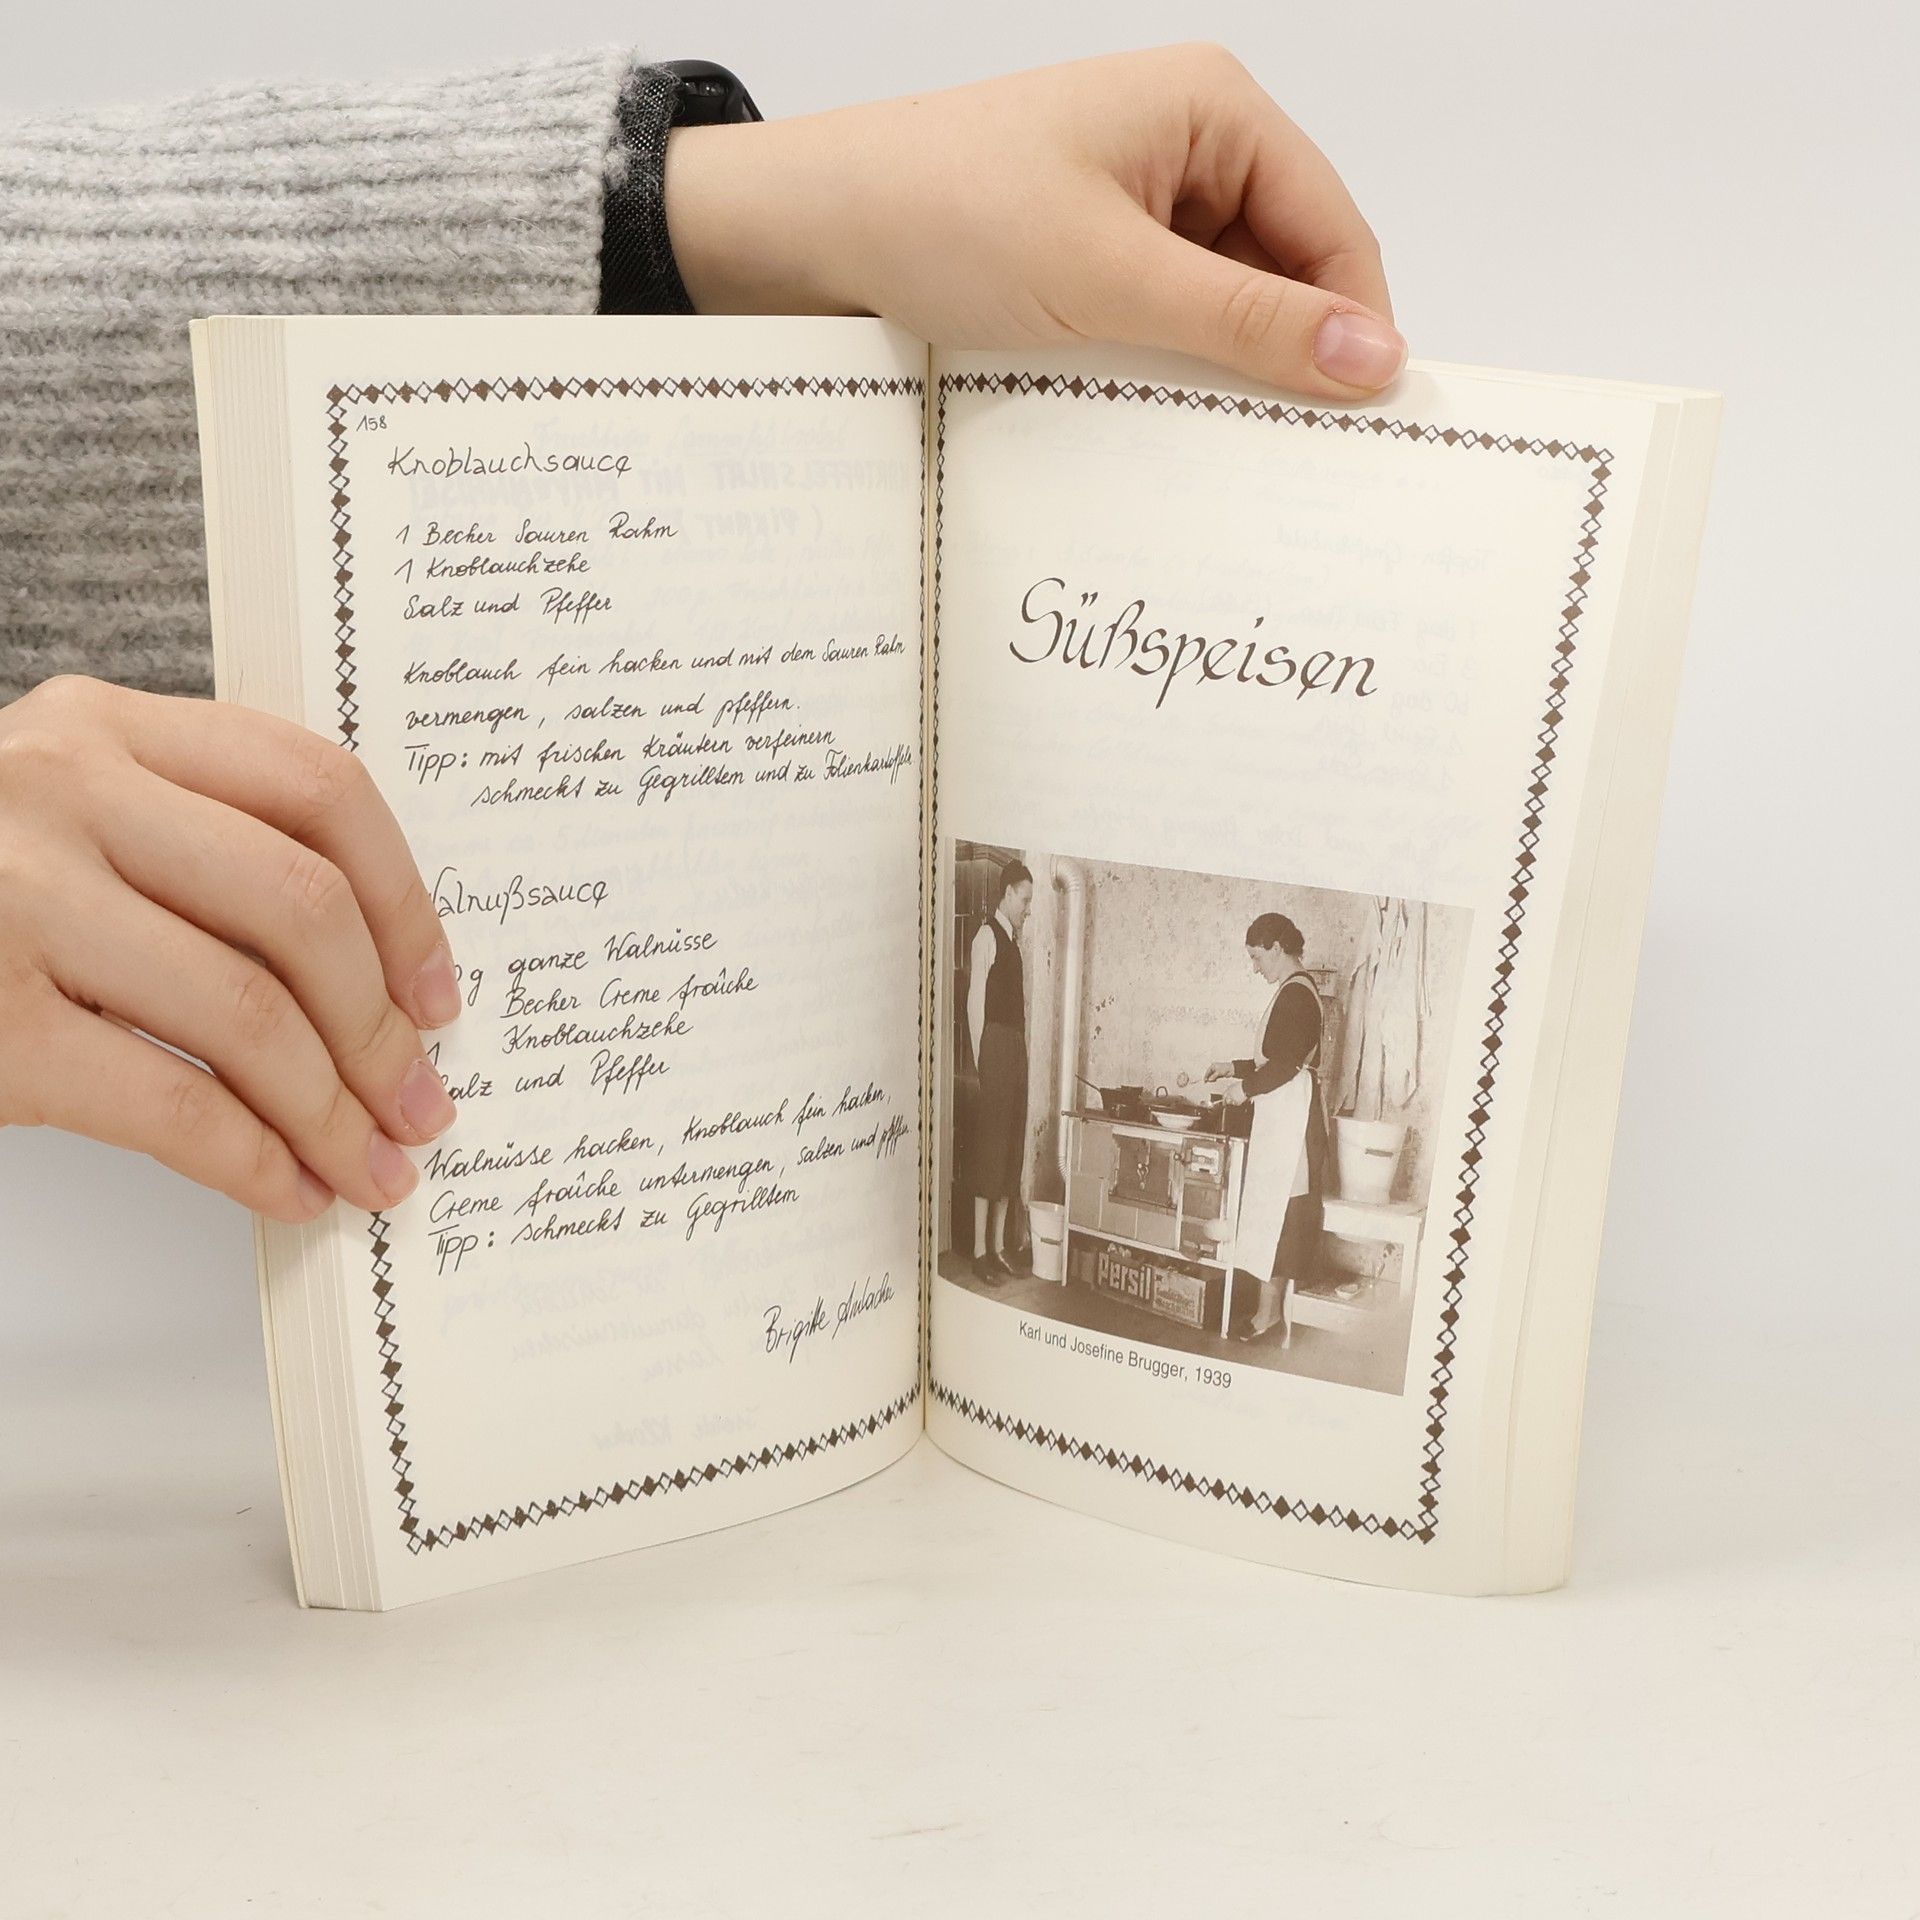 158
Knoblauchsauce
1 Becher Sauren Rahm
1 Knoblauchzehe
Salz und Pfeffer
Knoblauch fein hacken und mit dem Sauren Rahm
vermengen, salzen und pfeffern.
Tipp: mit frischen Kräutern verfeinern
schmeckt zu Gegrilltem und zu Folienkartoffeln
Walnußsauce
g ganze Walnüsse
Becher Creme fraîche
1 Knoblauchzehe
Salz und Pfeffer
Walnüsse hacken, Knoblauch fein hacken,
Creme fraîche untermengen, salzen und pfeffern.
Tipp: schmeckt zu Gegrilltem
Brigitte
Süßspeisen
Persil
Karl und Josefine Brugger, 1939